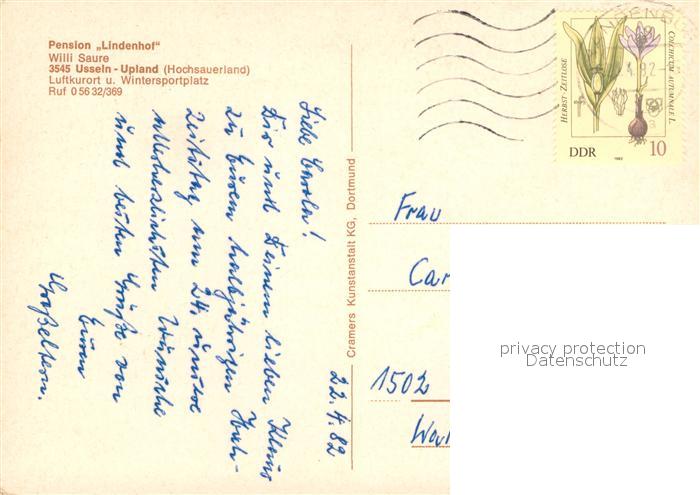 Pension „Lindenhof“
Willi Saure
3545 Usseln - Upland (Hochsauerland)
Luftkurort u. Wintersportplatz
Ruf 0 56 32/369
HERBST-ZEITLOSE
COLCHICUM AUTUMNALE L.
DDR
1982
10
Liebe Carola!
Dir und Deinem lieben Klaus
zu Eurem halbjährigen Hoch-
zeitstag am 24. unsere
allerherzlichsten Wünsche
und besten Grüße von
Euren
Großeltern.
22.4.82
Cramers Kunstanstalt KG, Dortmund
Frau
Car
1502
privacy protection
Datenschutz